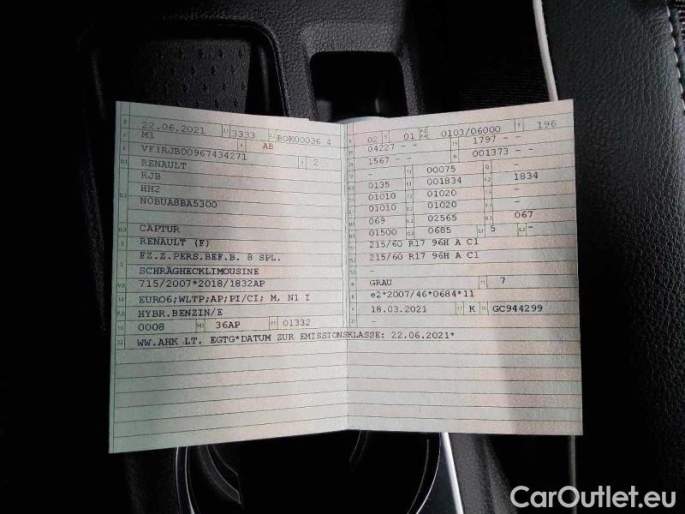 22.06.2021 3333 BOK00036 4
M1 AB
VF1RJB00967434271 2
RENAULT
RJB
HH2
N0BUA8BA5300
CAPTUR
RENAULT (F)
FZ.Z.PERS.BEF.B. 8 SPL.
SCHRÄGHECKLIMOUSINE
715/2007*2018/1832AP
EURO6;WLTP;AP;PI/CI; M, N1 I
HYBR.BENZIN/E
0008 36AP 01332
WW.AHK LT. EGTG*DATUM ZUR EMISSIONSKLASSE: 22.06.2021*
02 01 0103/06000 196
04227 - - 1797 - -
1567 - - 001373 - -
- 00075 -
0135 001834 1834
01010 01020 -
01010 01020 -
069 02565 067
01500 0685 5 -
215/60 R17 96H A C1
215/60 R17 96H A C1
-
GRAU 7
e2*2007/46*0684*11
18.03.2021 K GC944299
-
CarOutlet.eu